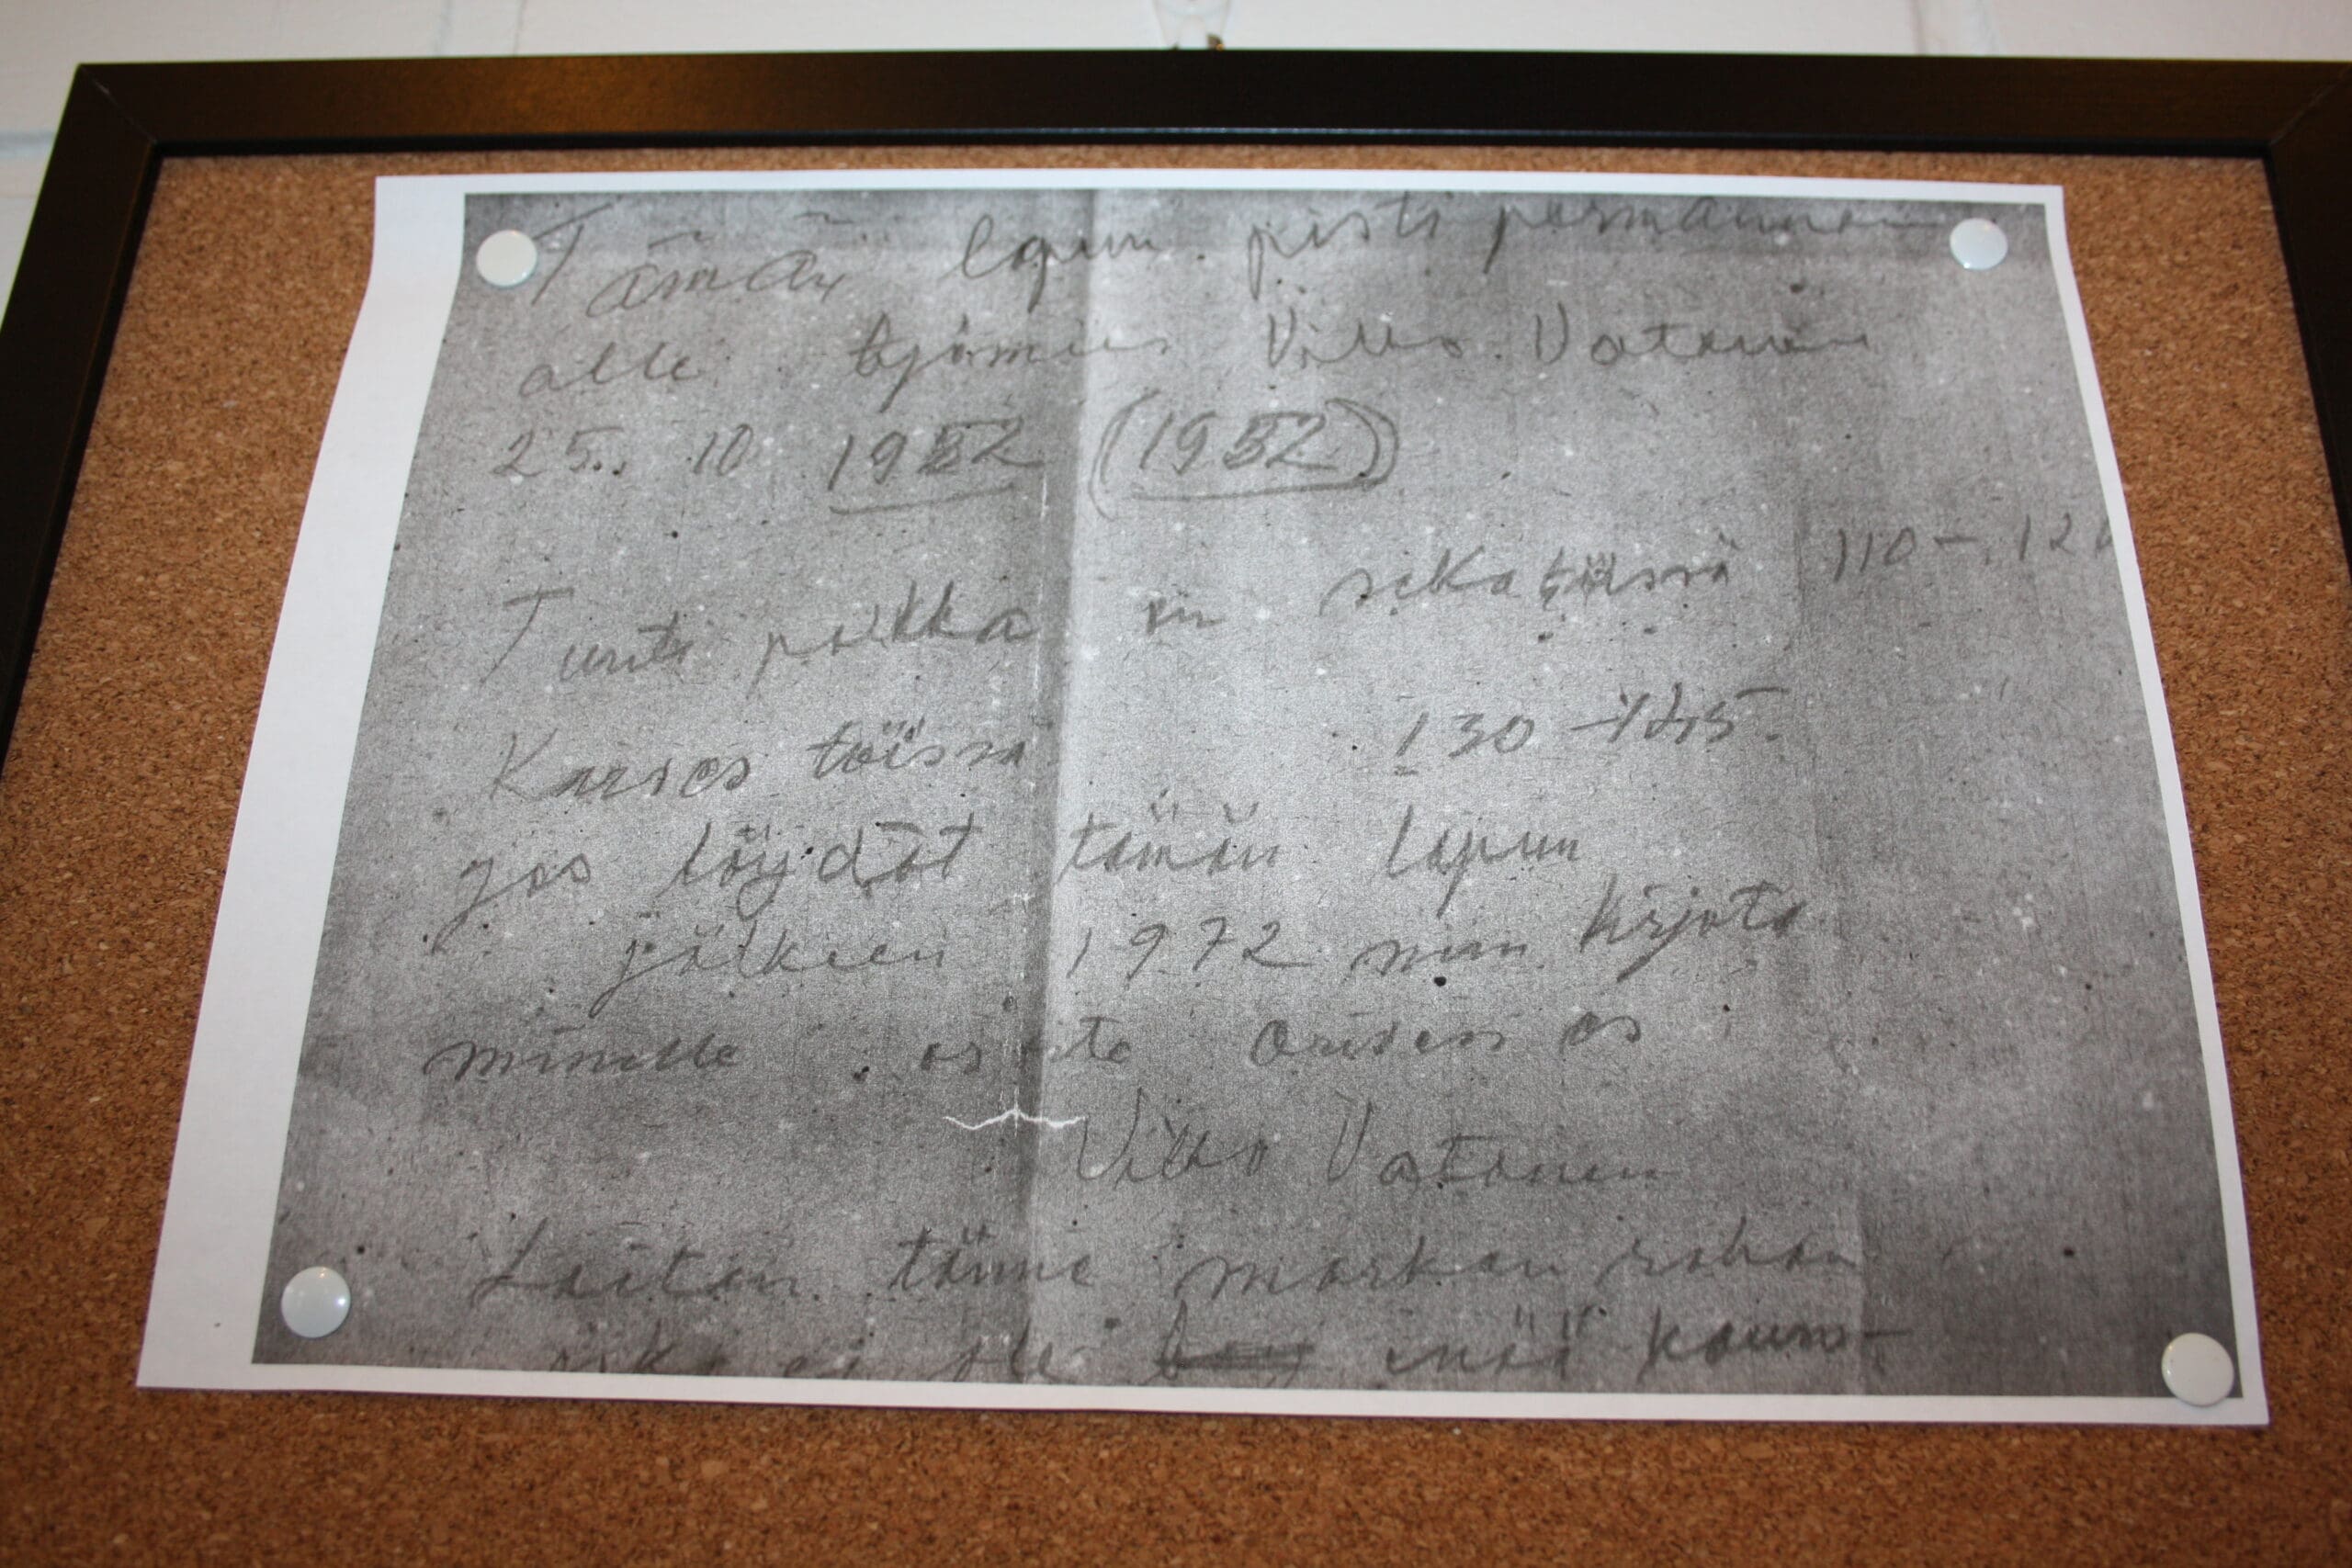 Tämän lapun pisti permannon
alle työmies Vilho Vatanen
25. 10 1952 (1952)
Tunti palkka on seka töissä 110 – 120
töissä 130 – 145.
jos löydät tämän lapun
jälkeen 1972 niin kirjota
minulle osote on
Vilho Vatanen
Laitan tänne markan rahan
ei ole enää